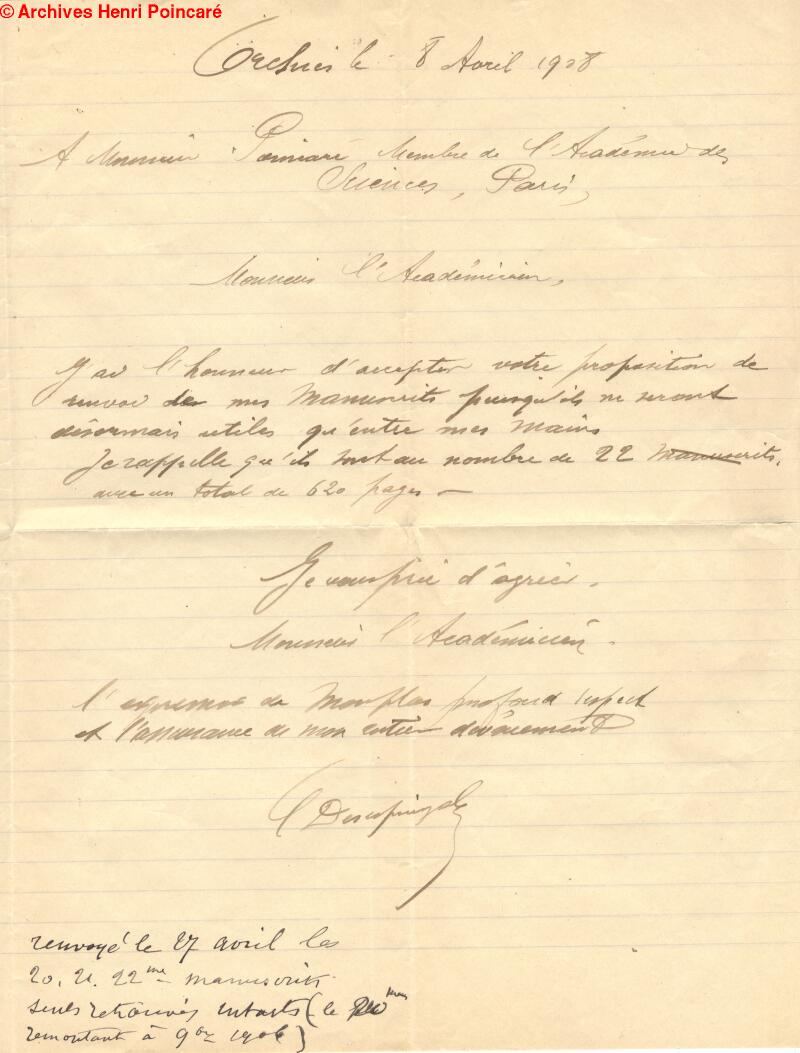 © Archives Henri Poincaré
Orchies le 8 Avril 1908
A Monsieur Poincaré Membre de l'Académie des
Sciences, Paris,
Monsieur l'Académicien,
J'ai l'honneur d'accepter votre proposition de
renvoi de mes Manuscrits puisqu'ils ne seront
désormais utiles qu'entre mes mains
Je rappelle qu'ils sont au nombre de 22 Manuscrits.
avec un total de 620 pages -
Je vous prie d'agréer.
Monsieur l'Académicien.
l'expression de Mon plus profond respect
et l'assurance de mon entier dévouement
renvoyé le 27 avril les
20. 21. 22me manuscrits
seuls retrouvés intacts (le
remontant à 9bre 1906)